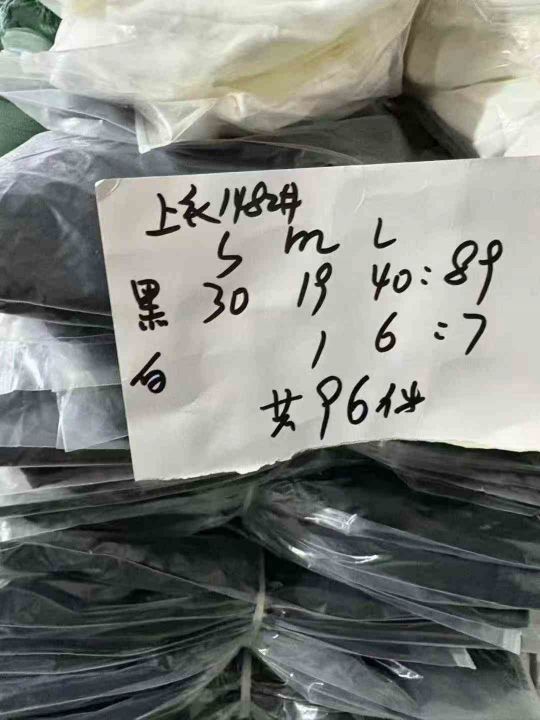 上衣1482#
S m L
黑 30 19 40:89
白 1 6 :7
共96件